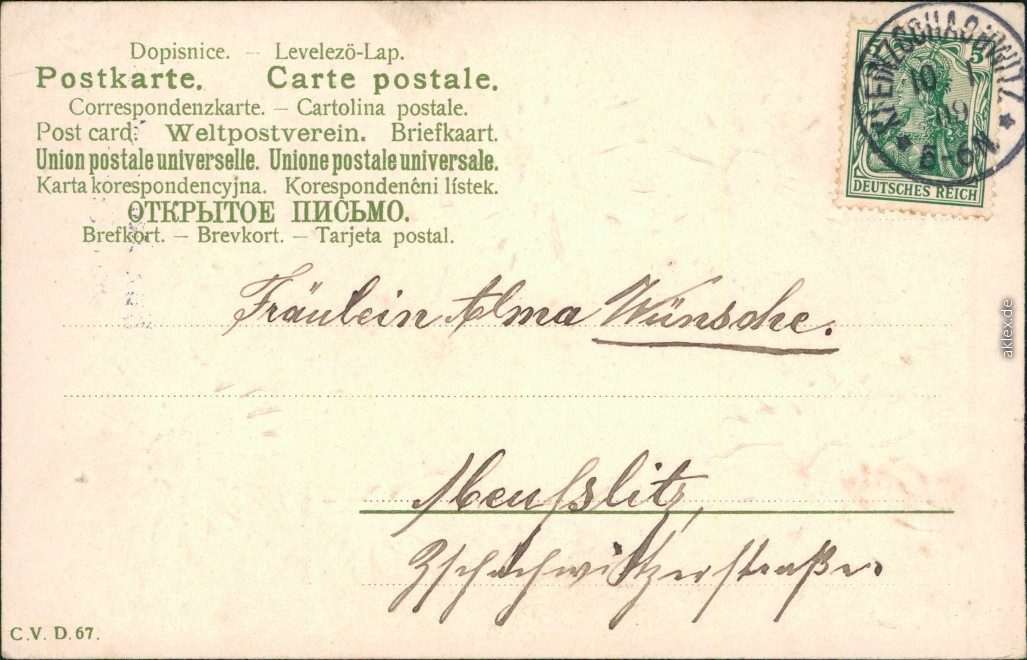 Dopisnice. — Levelezö-Lap.
Postkarte. Carte postale.
Correspondenzkarte. — Cartolina postale.
Post card. Weltpostverein. Briefkaart.
Union postale universelle. Unione postale universale.
Karta korespondencyjna. Korespondenční lístek.
ОТКРЫТОЕ ПИСЬМО.
Brefkort. — Brevkort. — Tarjeta postal.
KLEINZSCHACHWITZ
10 1
09
5-6N
5
DEUTSCHES REICH
Fräulein Alma Wünsche.
Meußlitz,
Zschachwitzerstraße.
C.V. D. 67.
aklex.de